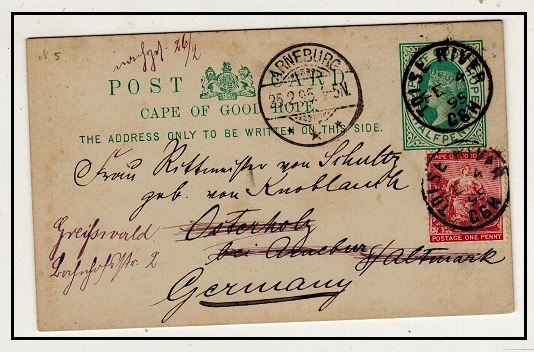 N 5
nachges. 26/2
POST CARD
CAPE OF GOOD HOPE.
THE ADDRESS ONLY TO BE WRITTEN ON THIS SIDE.
ARNEBURG
25.2.95. 4-5N.
HALFPENNY
TOISE RIVER
CGH
Frau Rittmeister von Schultz
geb. von Knoblauch
Osterholz
bei Arneburg Altmark
Germany
Greifswald
Bahnhofstr. 2
CAPE OF GOOD HOPE
POSTAGE ONE PENNY
TOISE RIVER
CGH